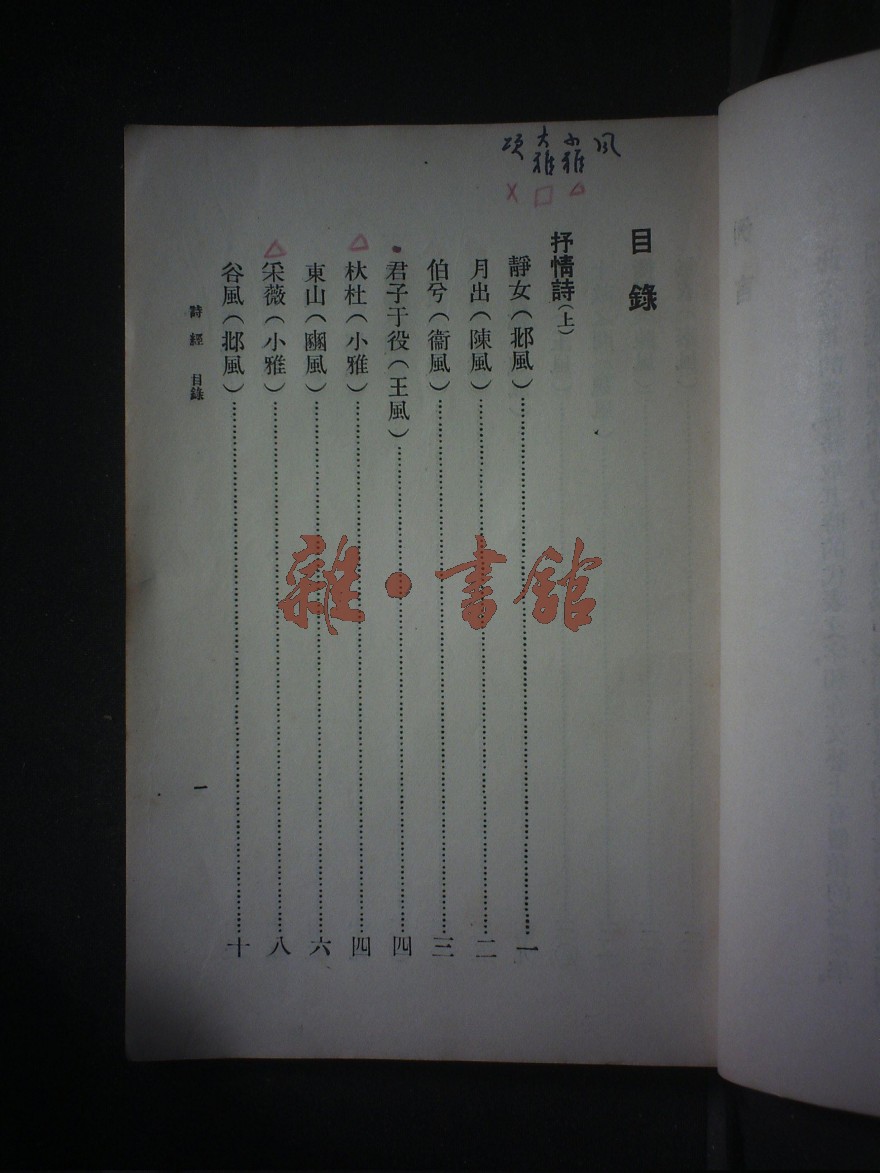 風 小雅 大雅 頌
目錄
抒情詩（上）
靜女（邶風）……一
月出（陳風）……二
伯兮（衞風）……三
君子于役（王風）……四
杕杜（小雅）……四
東山（豳風）……六
采薇（小雅）……八
谷風（邶風）……十
詩經 目錄
一
雜·書館